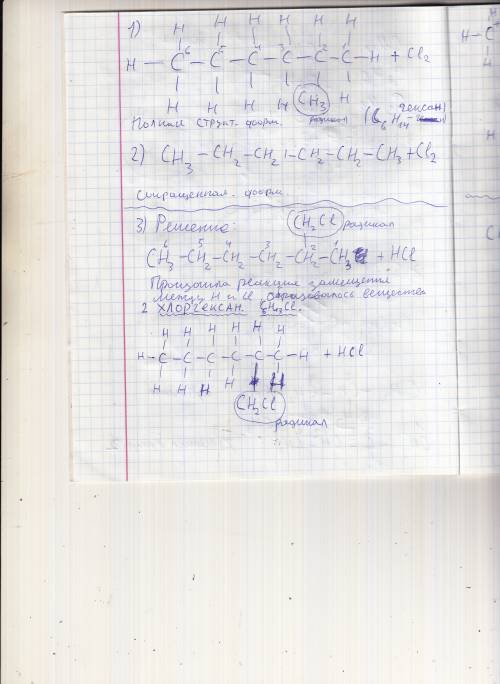 1) H H H H H H
H - C⁶ - C⁵ - C⁴ - C³ - C² - C¹ - H + Cl₂
H H H H CH₃ H
Полная структ. форм. радикал (C₆H₁₄ гексан)
2) CH₃ - CH₂ - CH₂ - CH₂ - CH₂ - CH₃ + Cl₂
Сокращенная. форм.
3) Решение: CH₂Cl радикал
⁶CH₃ - ⁵CH₂ - ⁴CH₂ - ³CH₂ - ²CH₂ - ¹CH₃ + HCl
Произошла реакция замещения
между H и Cl, образовалось вещество
2 ХЛОРГЕКСАН.
H H H H H H
H - C - C - C - C - C - C - H + HCl
H H H H H
CH₂Cl
радикал
H - C